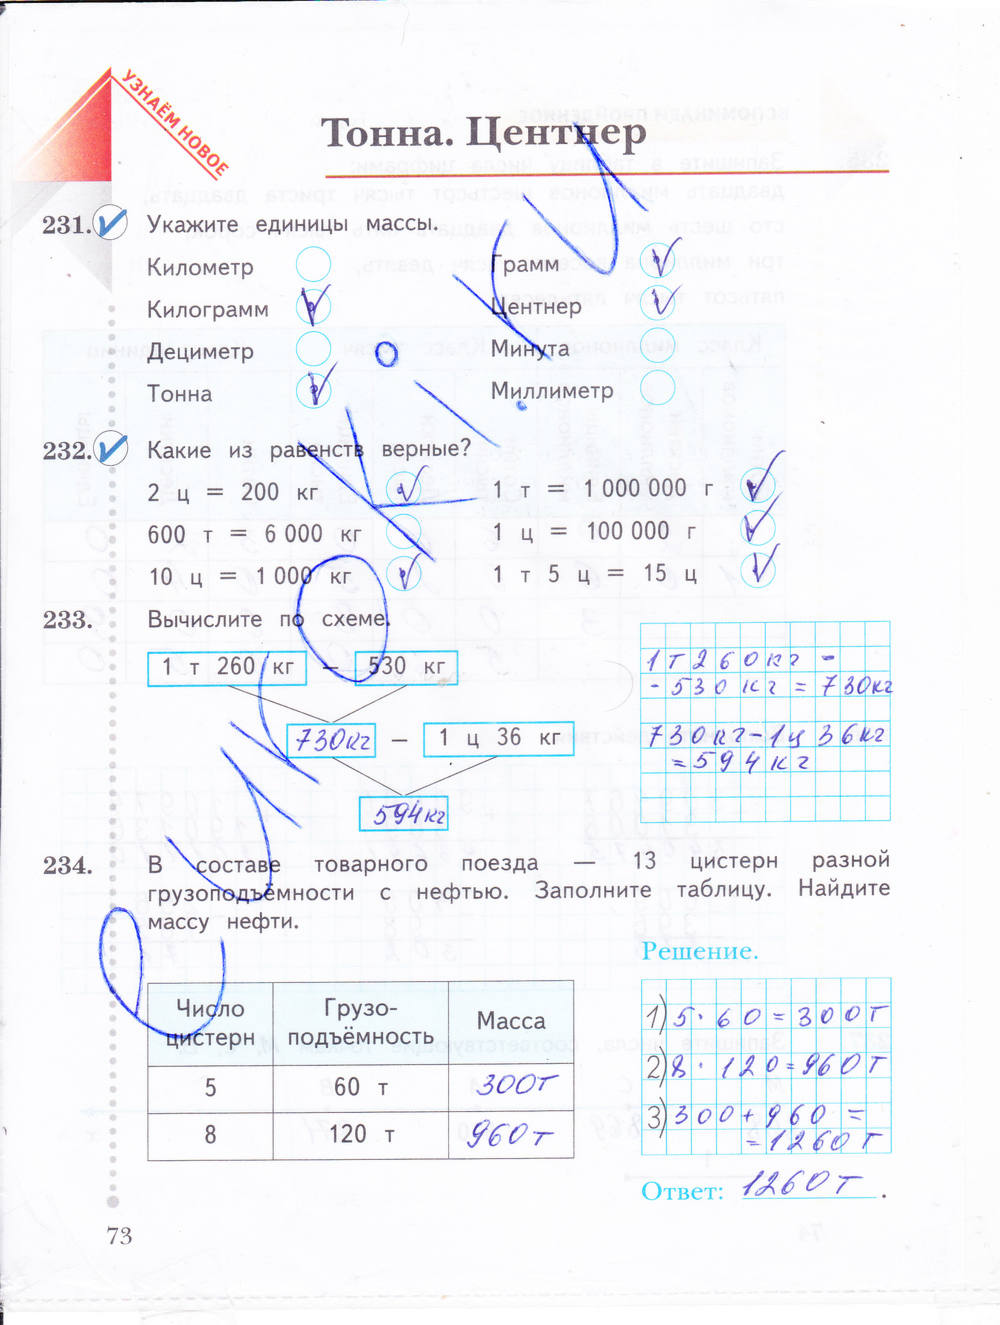 УЗНАЁМ НОВОЕ
Тонна. Центнер
231. Укажите единицы массы.
Километр
Килограмм
Дециметр
Тонна
Грамм
Центнер
Минута
Миллиметр
232. Какие из равенств верные?
2 ц = 200 кг
600 т = 6 000 кг
10 ц = 1 000 кг
1 т = 1 000 000 г
1 ц = 100 000 г
1 т 5 ц = 15 ц
233. Вычислите по схеме.
1 т 260 кг – 530 кг
730кг – 1 ц 36 кг
594кг
1т260кг -
- 530 кг = 730кг
730кг-1ц 36кг
=594кг
234. В составе товарного поезда — 13 цистерн разной
грузоподъёмности с нефтью. Заполните таблицу. Найдите
массу нефти.
Решение.
Число цистерн
Грузо-
подъёмность
Масса
5 60 т 300т
8 120 т 960т
1) 5·60=300т
2) 8·120=960т
3) 300+960=
=1260т
Ответ: 1260т.
73